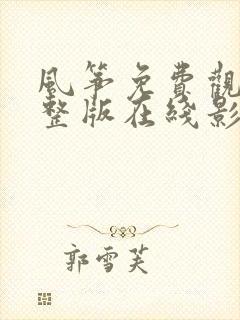 風箏免費觀
整版在綫影
郭雪芙